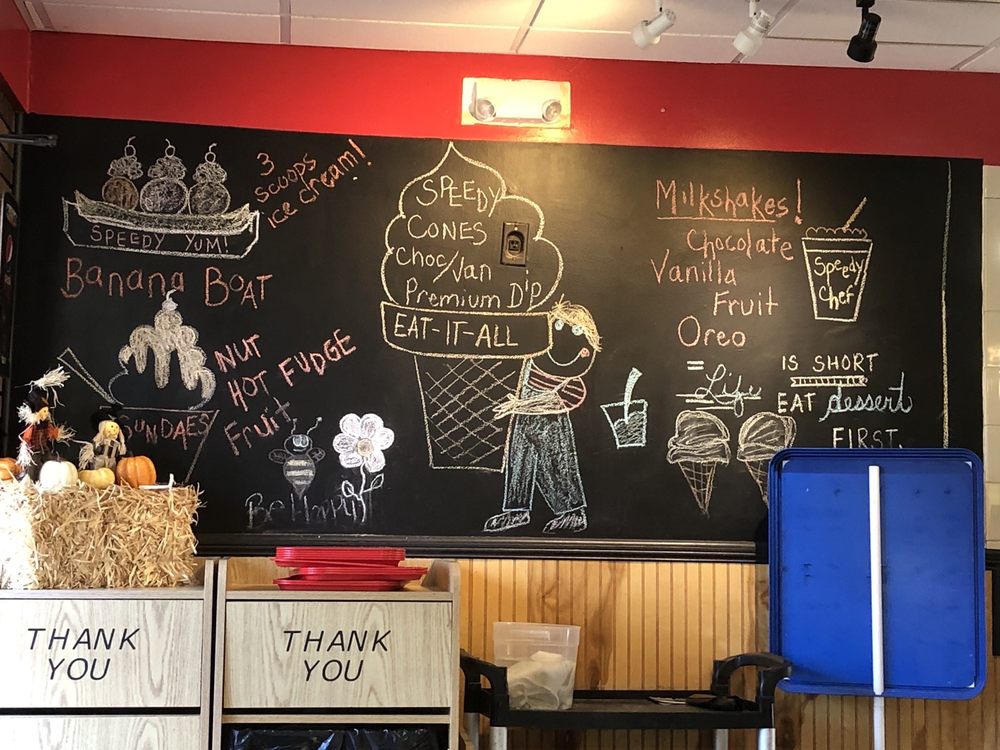 3
scoops
ice cream!
SPEEDY YUM!
Banana BOAT
NUT
HOT FUDGE
Fruit
SUNDAES
Be Happy
SPEEDY
CONES
Choc/Van
Premium Dip
EAT-IT-ALL
Milkshakes!
Chocolate
Vanilla
Fruit
Oreo
Speedy
Chef
Life IS SHORT
EAT dessert
FIRST.
THANK
YOU
THANK
YOU